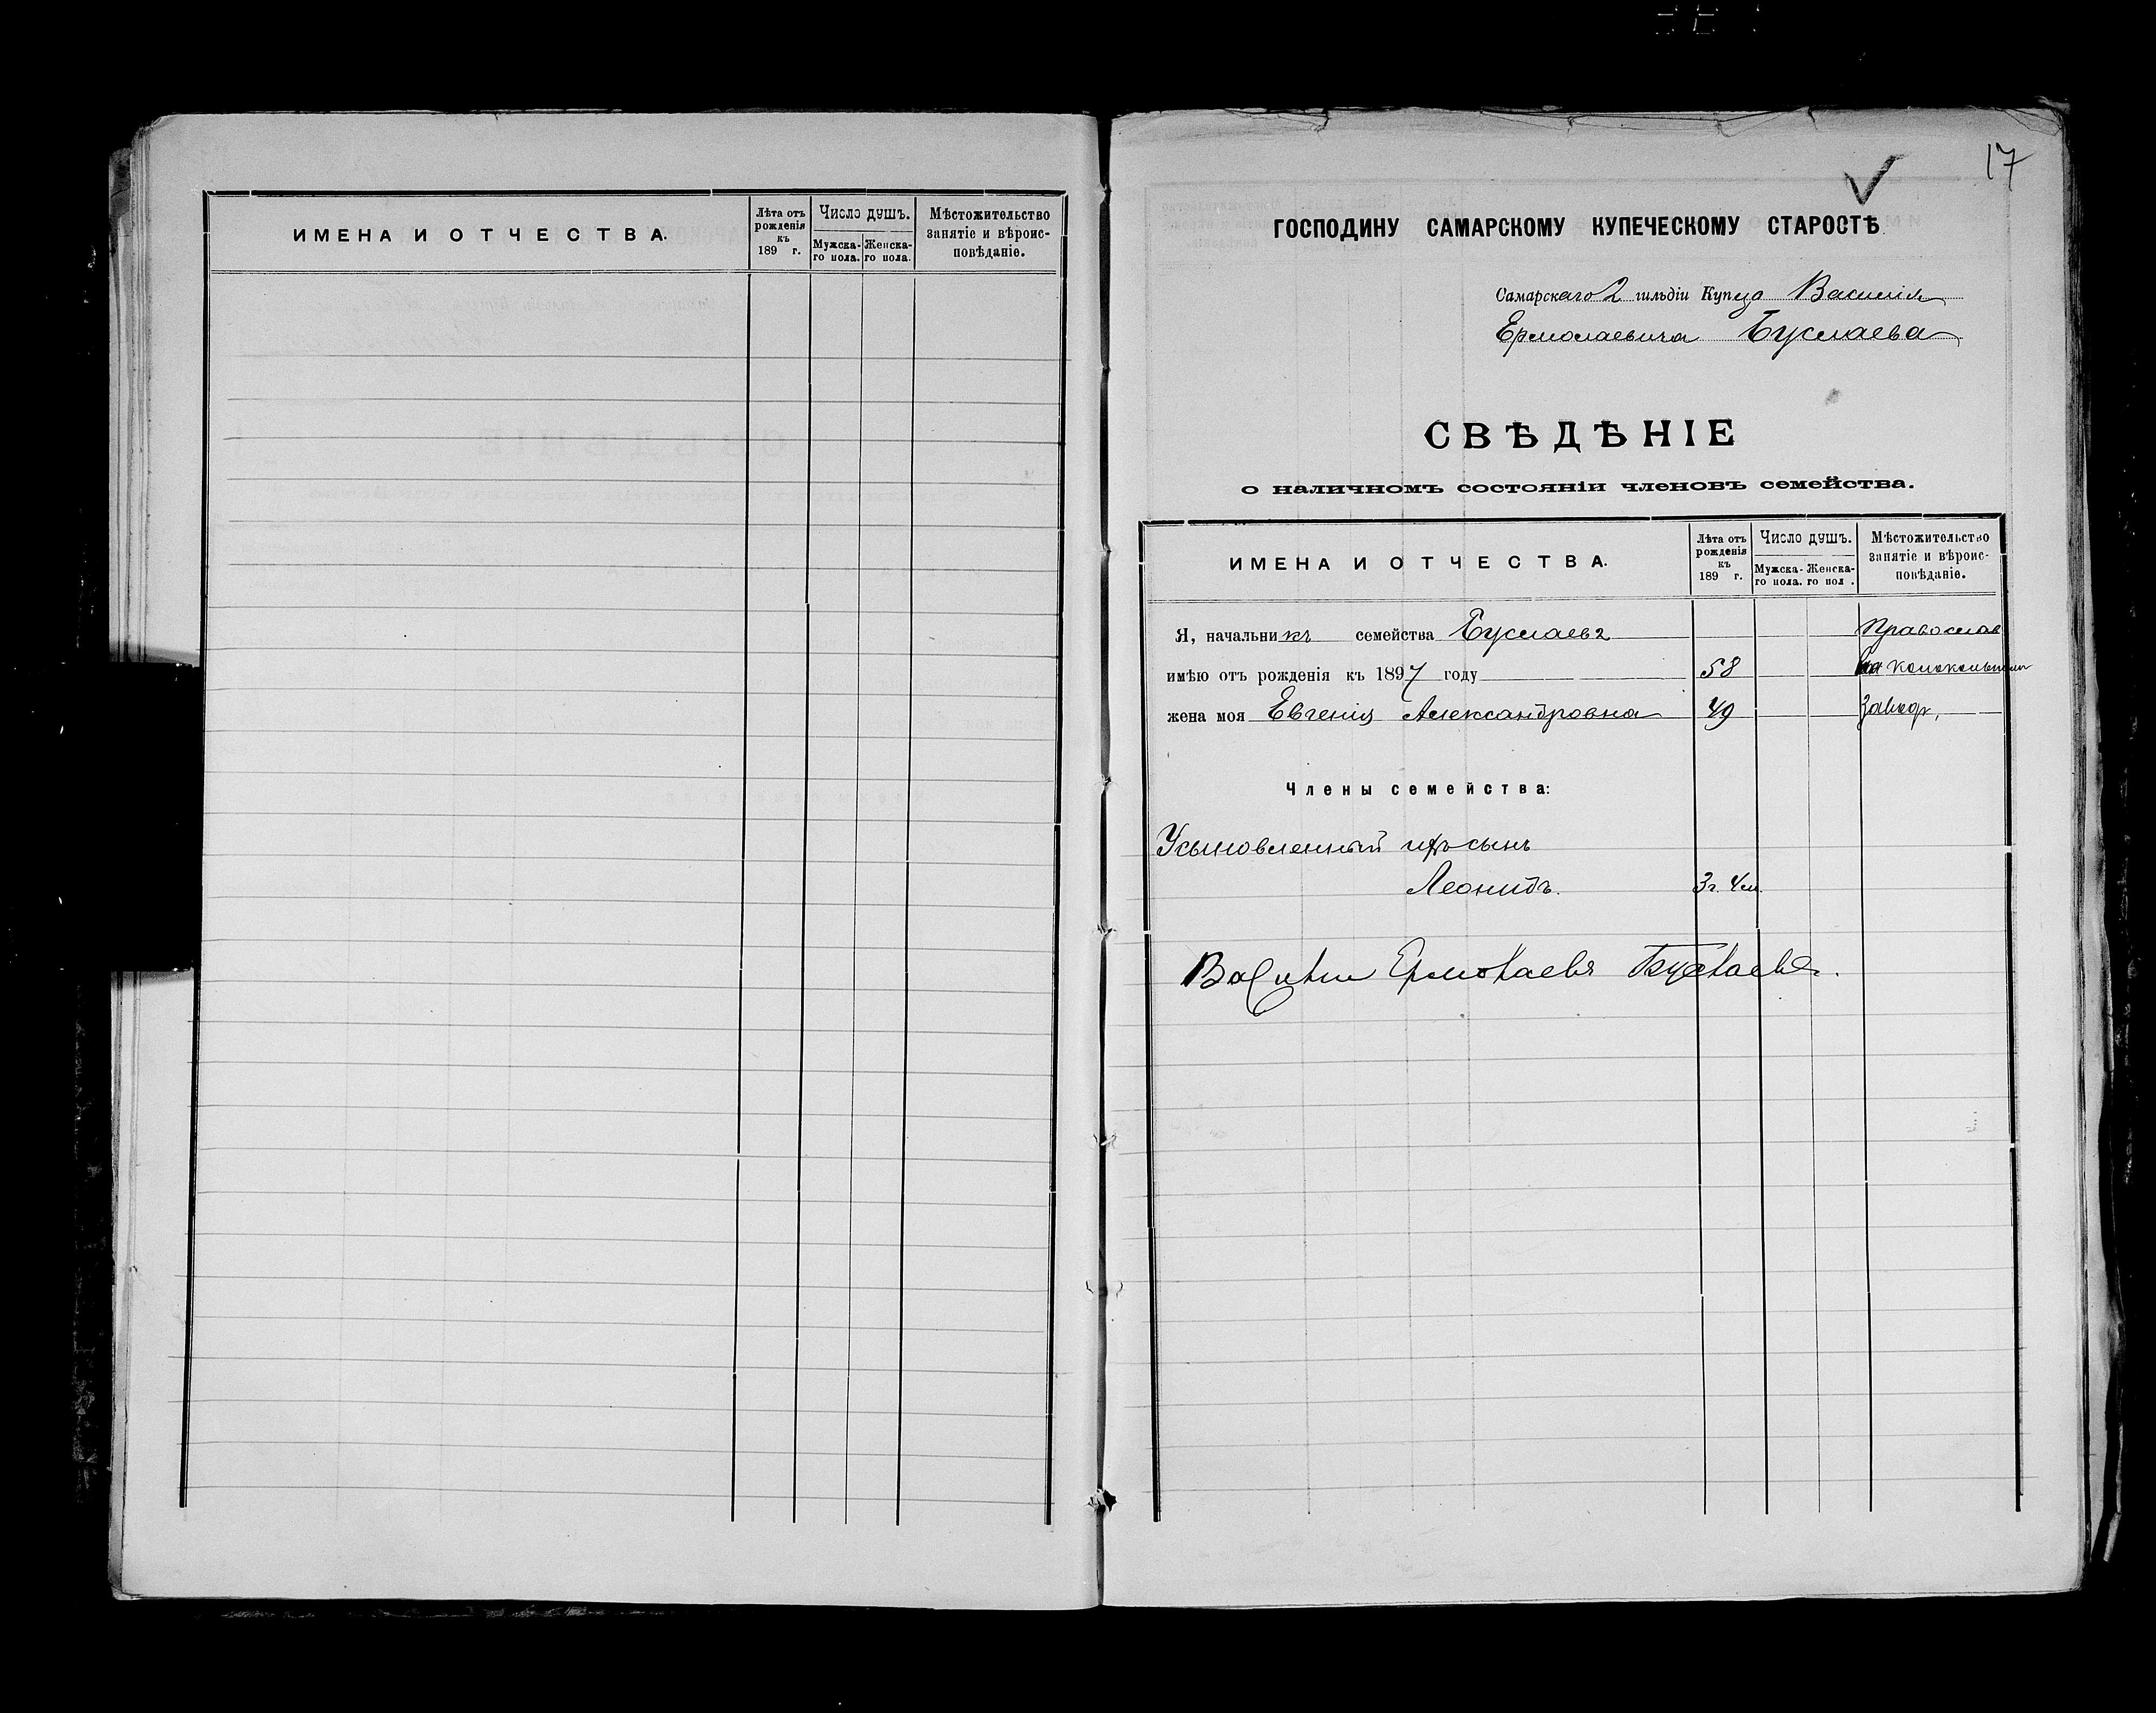 ИМЕНА И ОТЧЕСТВА.
Лѣта отъ рожденія къ 189 г.
Число душъ.
Мужска-го пола.
Женска-го пола.
Мѣстожительство занятіе и вѣроис-повѣданіе.
17
ГОСПОДИНУ САМАРСКОМУ КУПЕЧЕСКОМУ СТАРОСТѢ
Самарскаго 2 гильдіи Купца Василія
Ермолаевича Буслаева
СВѢДѢНІЕ
о наличномъ состояніи членовъ семейства.
ИМЕНА И ОТЧЕСТВА.
Лѣта отъ рожденія къ 189 г.
Число душъ.
Мужска-го пола.
Женска-го пол .
Мѣстожительство занятіе и вѣроис-повѣданіе.
Я, начальникъ семейства Буслаевъ Православ
имѣю отъ рожденія къ 1897 году 58 на колокольномъ
жена моя Евгенія Александровна 49
Члены семейства:
Усыновленный сынъ
Леонидъ. 3 г. 4 м.
Василий Ермолаевъ Буслаевъ.